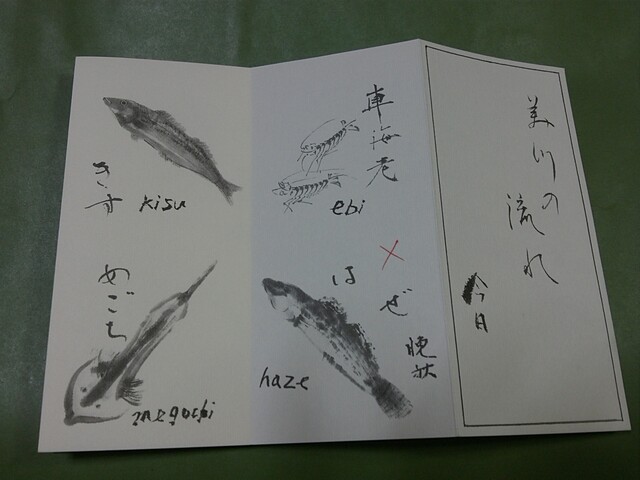 美川の
流れ
今月
車海老
ebi
×
はぜ
晩秋
haze
きす
kisu
めごち
megochi